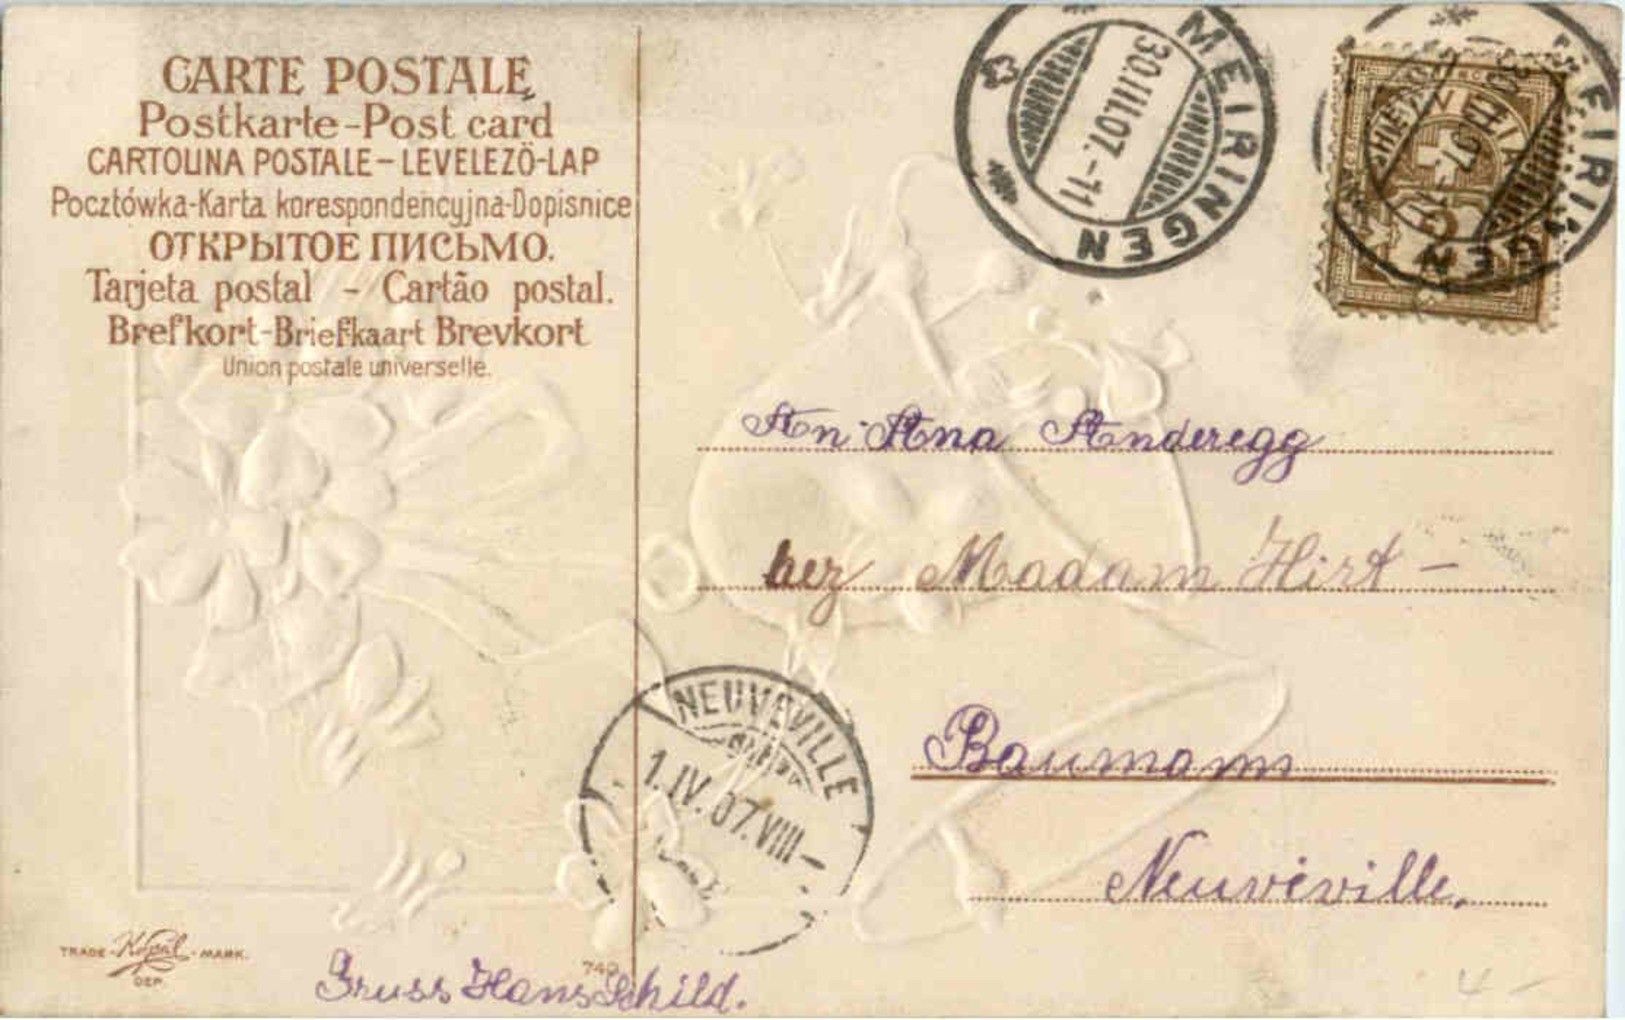 CARTE POSTALE
Postkarte-Post card
CARTOLINA POSTALE-LEVELEZÖ-LAP
Pocztówka-Karta korespondencyjna-Dopisnice
ОТКРЫТОЕ ПИСЬМО.
Tarjeta postal - Cartão postal.
Brefkort-Briefkaart Brevkort
Union postale universelle.
MEIRINGEN
30.III.07.-11
MEIRINGEN
HELVETIA
An Ana Anderegg
bez Madam Hirt -
Baumann
Neuvéville.
NEUVEVILLE
1.IV.07.VIII-
TRADE - MARK.
DEP.
740
Gruss Hans Schild.